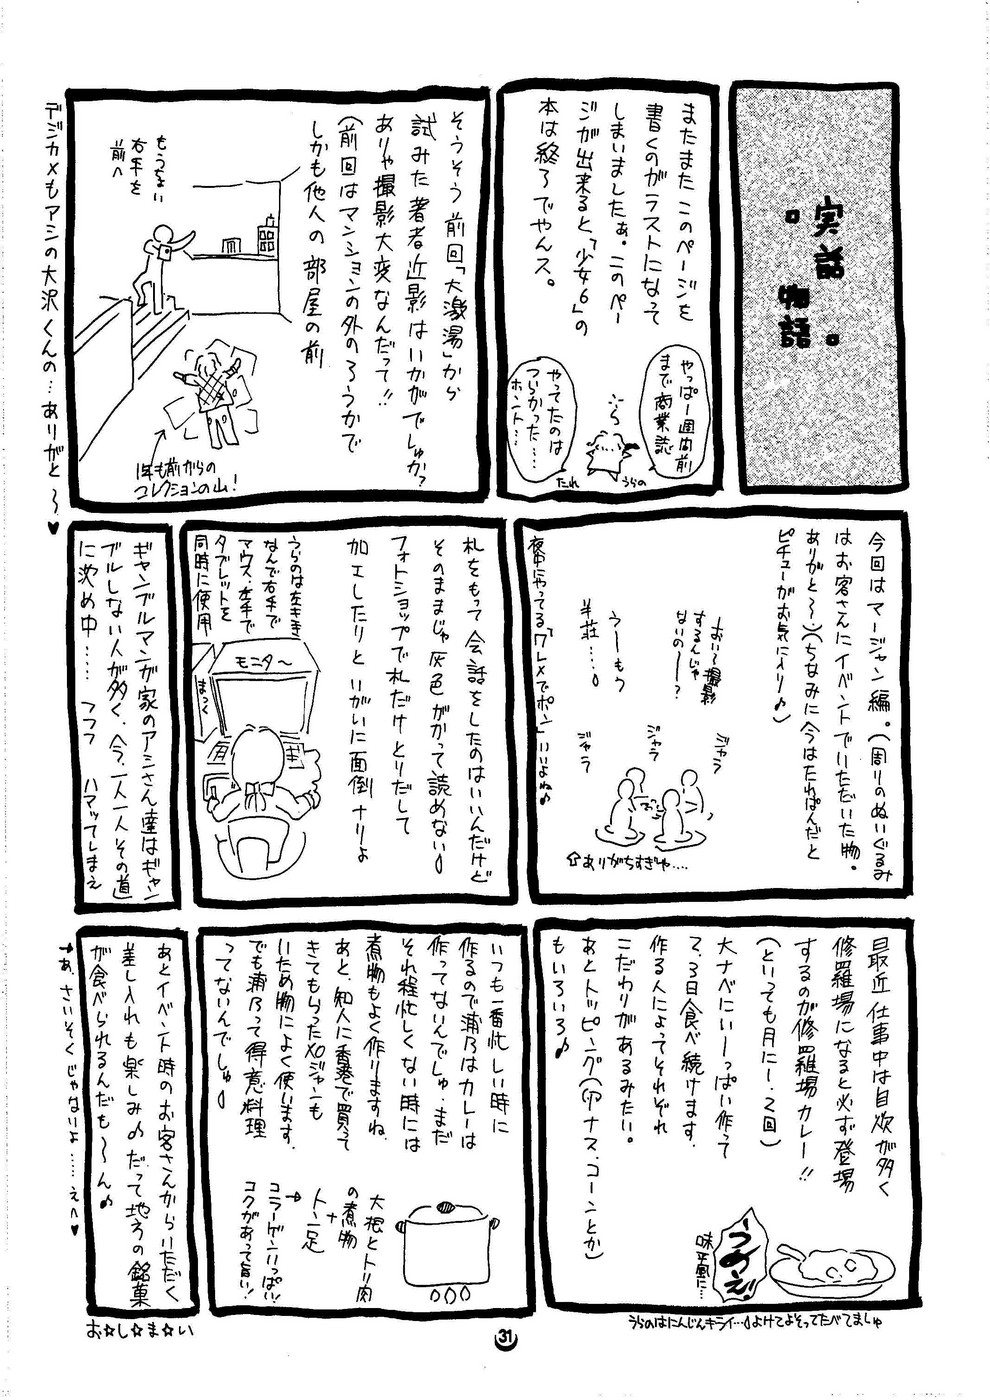 実話
物語
またまたこのページを
書くのがラストになって
しまいましたぁ。このペー
ジが出来ると、「少女6」の
本は終了でやんス。
やっぱ一週間前
まで商業誌
やってたのは
つらかった……
ホント…
たれ
うらの
そうそう前回「大激湯」から
試みた著者近影はいかがでしゅか?
ありゃ撮影大変なんだって!!
(前回はマンションの外のろうかで
しかも他人の部屋の前
もうちょい
右手を
前へ
1年も前からの
コレクションの山!
デジカメもアシの大沢くんの…ありがと〜♥
今回はマージャン編。(周りのぬいぐるみ
はお客さんにイベントでいただいた物。
ありがと〜。)(ちなみに今はたれぱんだと
ピチューがお気に入り♪)
おい〜撮影
するんじゃ
ないの〜?
うーもう
半荘…
ジャラ
ジャラ
ジャラ
☆ありがちすぎや…
夜中にやってる「ワレメでポン」いいよね♪
札をもって会話をしたのはいいんだけど
そのままじゃ灰色がかって読めない
フォトショップで札だけとりだして
加工したりといがいに面倒ナリよ
うらのは左きき
なんで右手で
マウス、左手で
タブレットを
同時に使用
モニタ〜
まっく
ギャンブルマンガ家のアシさん達はギャン
ブルしない人が多く、今、一人一人その道
に沈め中…… フフフ ハマッてしまえ
最近仕事中は自炊が多く
修羅場になると必ず登場
するのが修羅場カレー!!
(といっても月に1〜2回)
大ナベにいーっぱい作って
2、3日食べ続けます。
作る人によってそれぞれ
こだわりがあるみたい。
あとトッピング(パイナプス、コーンとか)
もいろいろ♪
うめぇ!
味平風に…
うらのはにんじんキライ…よけてよそってたべてましゅ
いつも一番忙しい時に
作るので浦乃はカレーは
作ってないんでしゅ。まだ
それ程忙しくない時には
煮物もよく作りますね。
あと、知人に香港で買って
きてもらったXOジャンも
いため物によく使います。
でも浦乃って得意料理
ってないんでしゅ
大根とトリ肉
の煮物
+
トン足
→
コラーゲンいっぱい!
コクがあって旨い!
あとイベント時のお客さんからいただく
差し入れも楽しみ♪だって地方の銘菓
が食べられるんだも〜ん♪
あ、さいそくじゃないよ……えへ♥
お☆し☆ま☆い
31